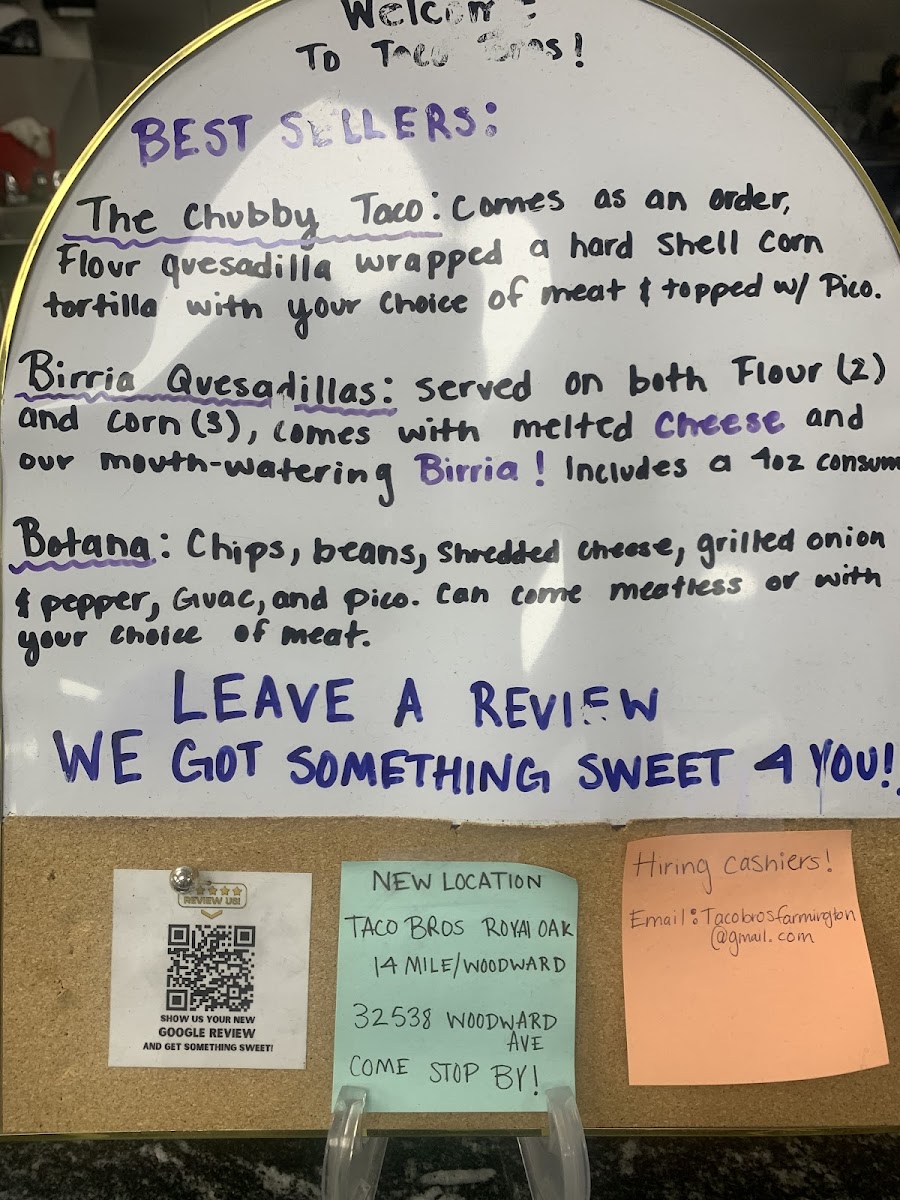 Welcome
To Taco Bros!
BEST SELLERS:
The Chubby Taco: Comes as an order,
Flour quesadilla wrapped a hard shell corn
tortilla with your choice of meat & topped w/ Pico.
Birria Quesadillas: served on both Flour (2)
and corn (3), comes with melted Cheese and
our mouth-watering Birria! Includes a 4oz consum
Botana: Chips, beans, shredded cheese, grilled onion
& pepper, Guac, and pico. Can come meatless or with
your choice of meat.
LEAVE A REVIEW
WE GOT SOMETHING SWEET 4 YOU!
REVIEW US!
SHOW US YOUR NEW
GOOGLE REVIEW
AND GET SOMETHING SWEET!
NEW LOCATION
TACO BROS ROYAL OAK
14 MILE/WOODWARD
32538 WOODWARD
AVE
COME STOP BY!
Hiring cashiers!
Email: Tacobrosfarmington
@gmail.com